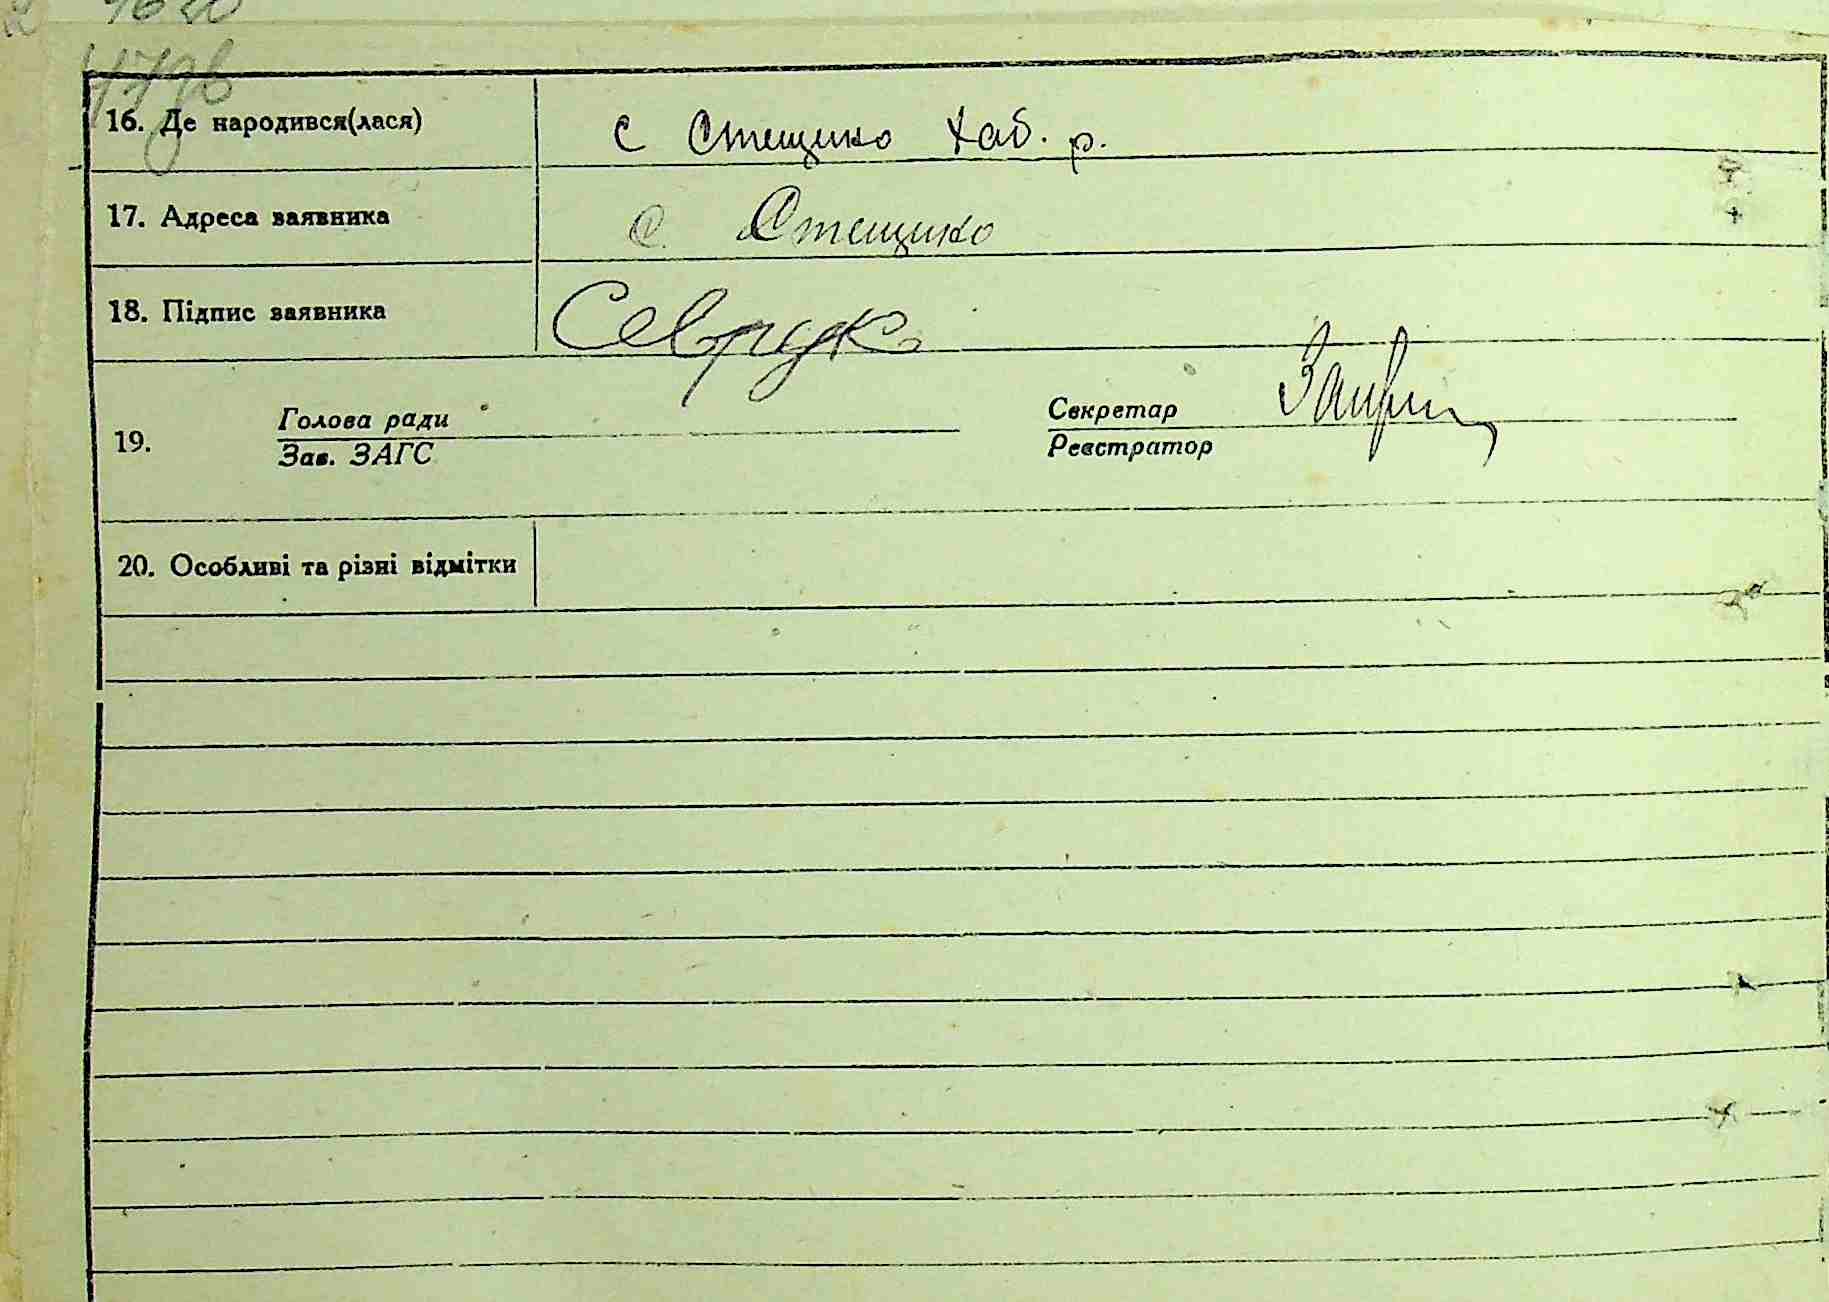 16. Де народився(лася) с Стещино Хаб. р.
17. Адреса заявника с. Стещино
18. Підпис заявника
19. Голова ради Секретар
Зав. ЗАГС Реєстратор
20. Особливі та різні відмітки